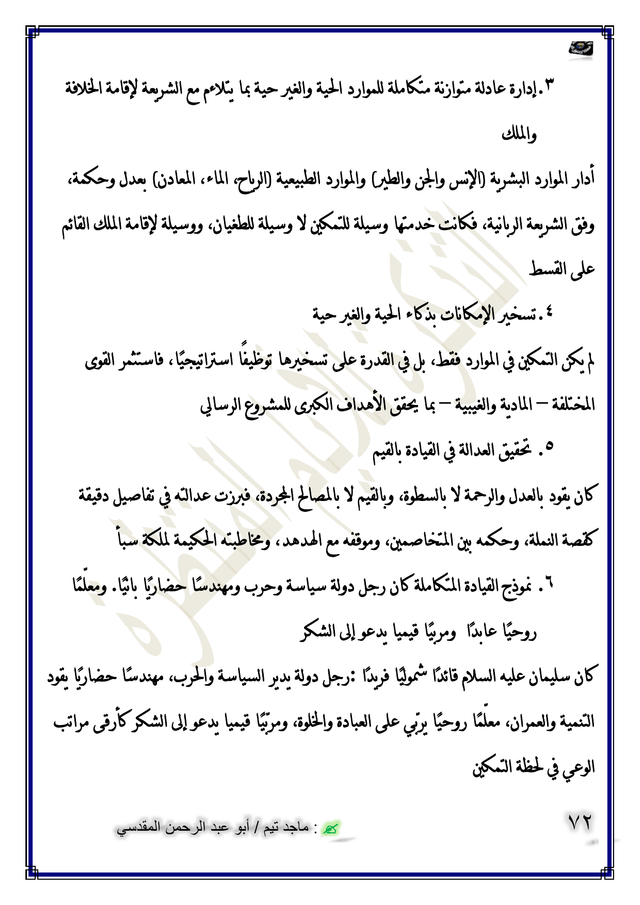 ٣. إدارة عادلة متوازنة متكاملة للموارد الحية والغير حية بما يتلاءم مع الشريعة لإقامة الخلافة
والملك
أدار الموارد البشرية (الإنس والجن والطير) والموارد الطبيعية (الرياح، الماء، المعادن) بعدل وحكمة،
وفق الشريعة الربانية، فكانت خدمتها وسيلة للتمكين لا وسيلة للطغيان، ووسيلة لإقامة الملك القائم
على القسط
٤. تسخير الإمكانات بذكاء الحية والغير حية
لم يكن التمكين في الموارد فقط، بل في القدرة على تسخيرها توظيفًا استراتيجيًا، فاستثمر القوى
المختلفة – المادية والغيبية – بما يحقق الأهداف الكبرى للمشروع الرسالي
٥. تحقيق العدالة في القيادة بالقيم
كان يقود بالعدل والرحمة لا بالسطوة، وبالقيم لا بالمصالح المجردة، فبرزت عدالته في تفاصيل دقيقة
كقصة النملة، وحكمه بين المتخاصمين، وموقفه مع الهدهد، ومخاطبته الحكيمة لملكة سبأ
٦. نموذج القيادة المتكاملة كان رجل دولة سياسة وحرب ومهندسًا حضاريًا بانيًا. ومعلّمًا
روحيًا عابدًا ومربيًا قيميا يدعو إلى الشكر
كان سليمان عليه السلام قائدًا شموليًا فريدًا :رجل دولة يدير السياسة والحرب، مهندسًا حضاريًا يقود
التنمية والعمران، معلّمًا روحيًا يربّي على العبادة والخلوة، ومربّيًا قيميا يدعو إلى الشكر كأرقى مراتب
الوعي في لحظة التمكين
٧٢
: ماجد تيم / أبو عبد الرحمن المقدسي